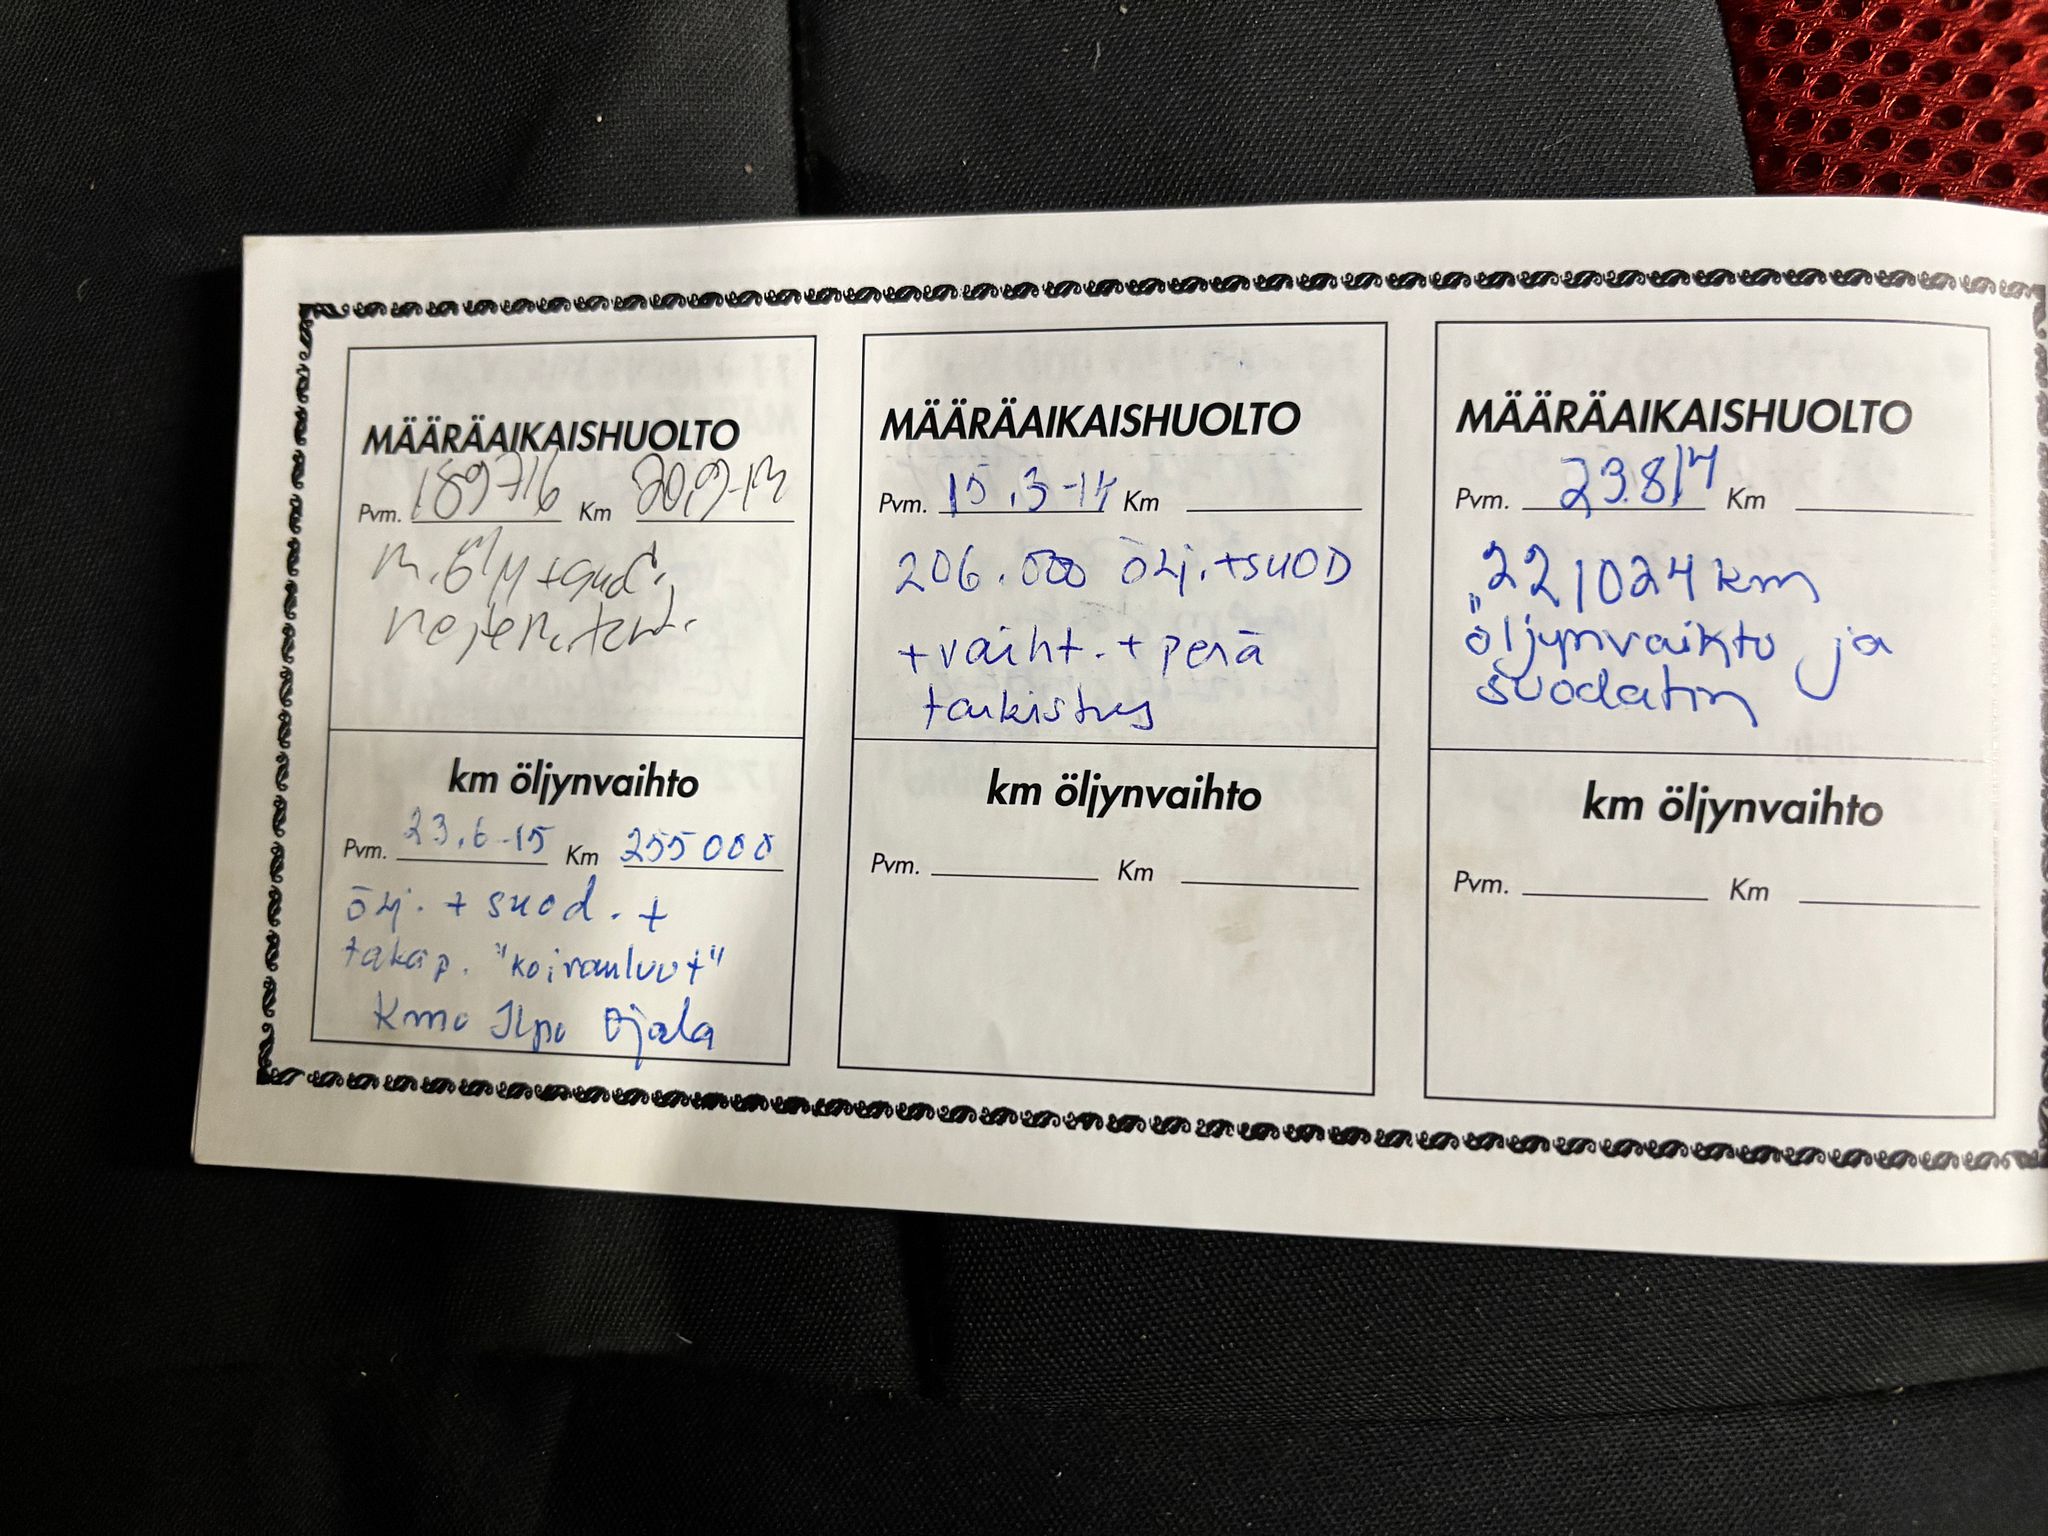 MÄÄRÄAIKAISHUOLTO
Pvm. 189716 Km 20.9-13
m.öljy+suod.
MÄÄRÄAIKAISHUOLTO
Pvm. 15.3-14 Km
206.000 ölj.+SUOD
+vaiht.+perä
tarkistus
MÄÄRÄAIKAISHUOLTO
Pvm. 23.8/14 Km
221024 km
öljynvaihto ja
suodatin
km öljynvaihto
Pvm. 23.6-15 Km 255000
ölj. + suod. +
takap. "koiranluut"
Kmo Ilpo Ojala
km öljynvaihto
Pvm. Km
km öljynvaihto
Pvm. Km